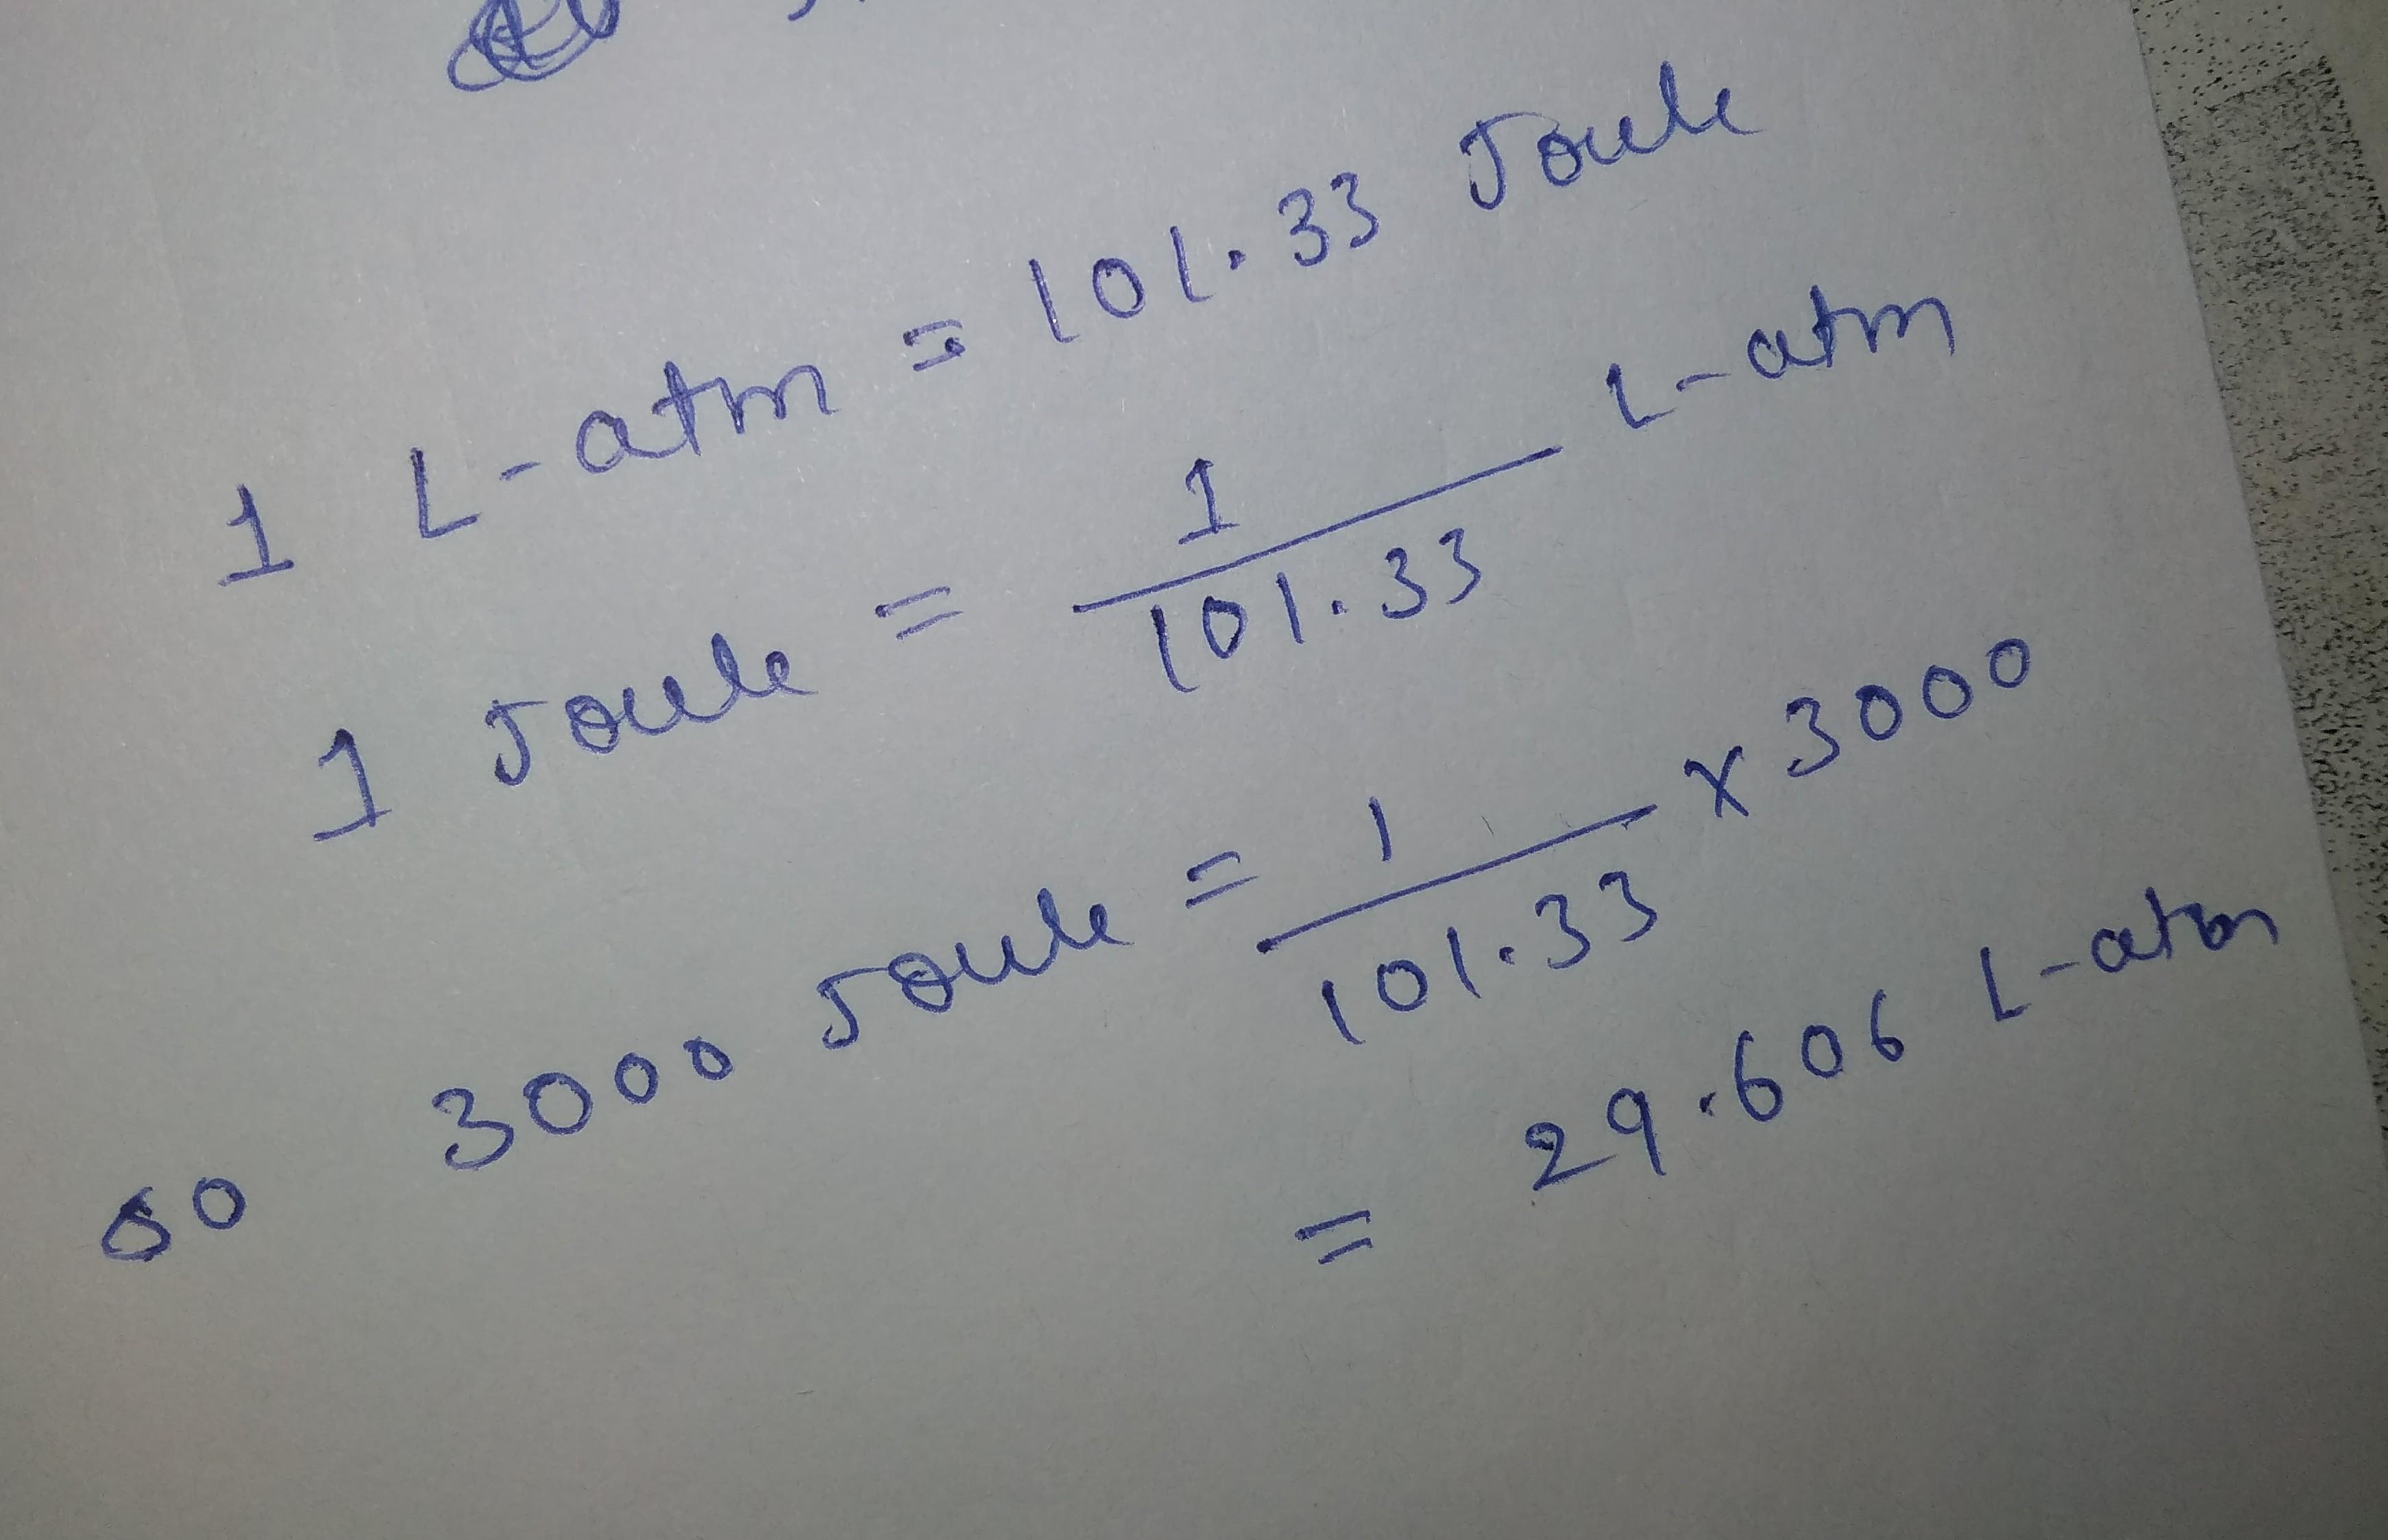 1 L-atm = 101.33 Joule
1 Joule = 1/101.33 L-atm
so 3000 Joule = 1/101.33 x 3000
= 29.606 L-atm